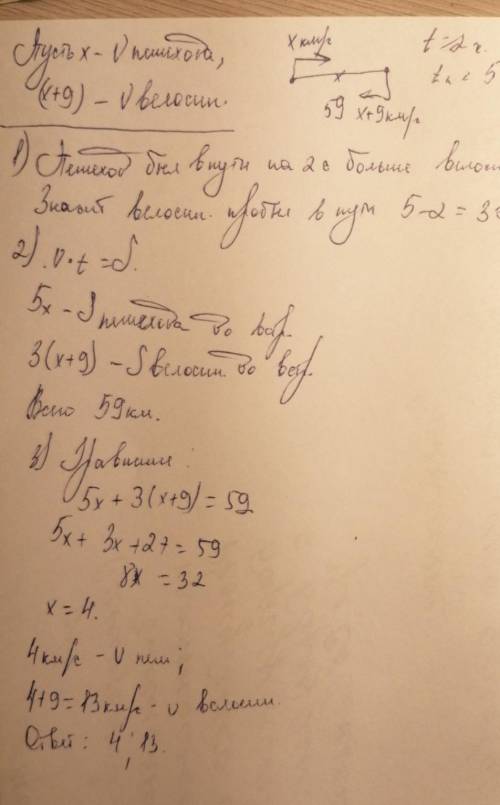 Пусть x – v пешехода,
(x+9) – v велосип.
x км/ч
59 x+9км/ч
t=2ч.
1) Пешеход был в пути на 2ч больше велоси
Значит велосип. пробыл в пути 5-2=3ч
2) v·t=S.
5x – S пешехода до встр.
3(x+9) – S велосип. до встр.
Всего 59км.
3) Уравнение:
5x+3(x+9)=59
5x+3x+27=59
8x=32
x=4.
4км/ч – v пеш;
4+9=13км/ч – v велосип.
Ответ: 4; 13.